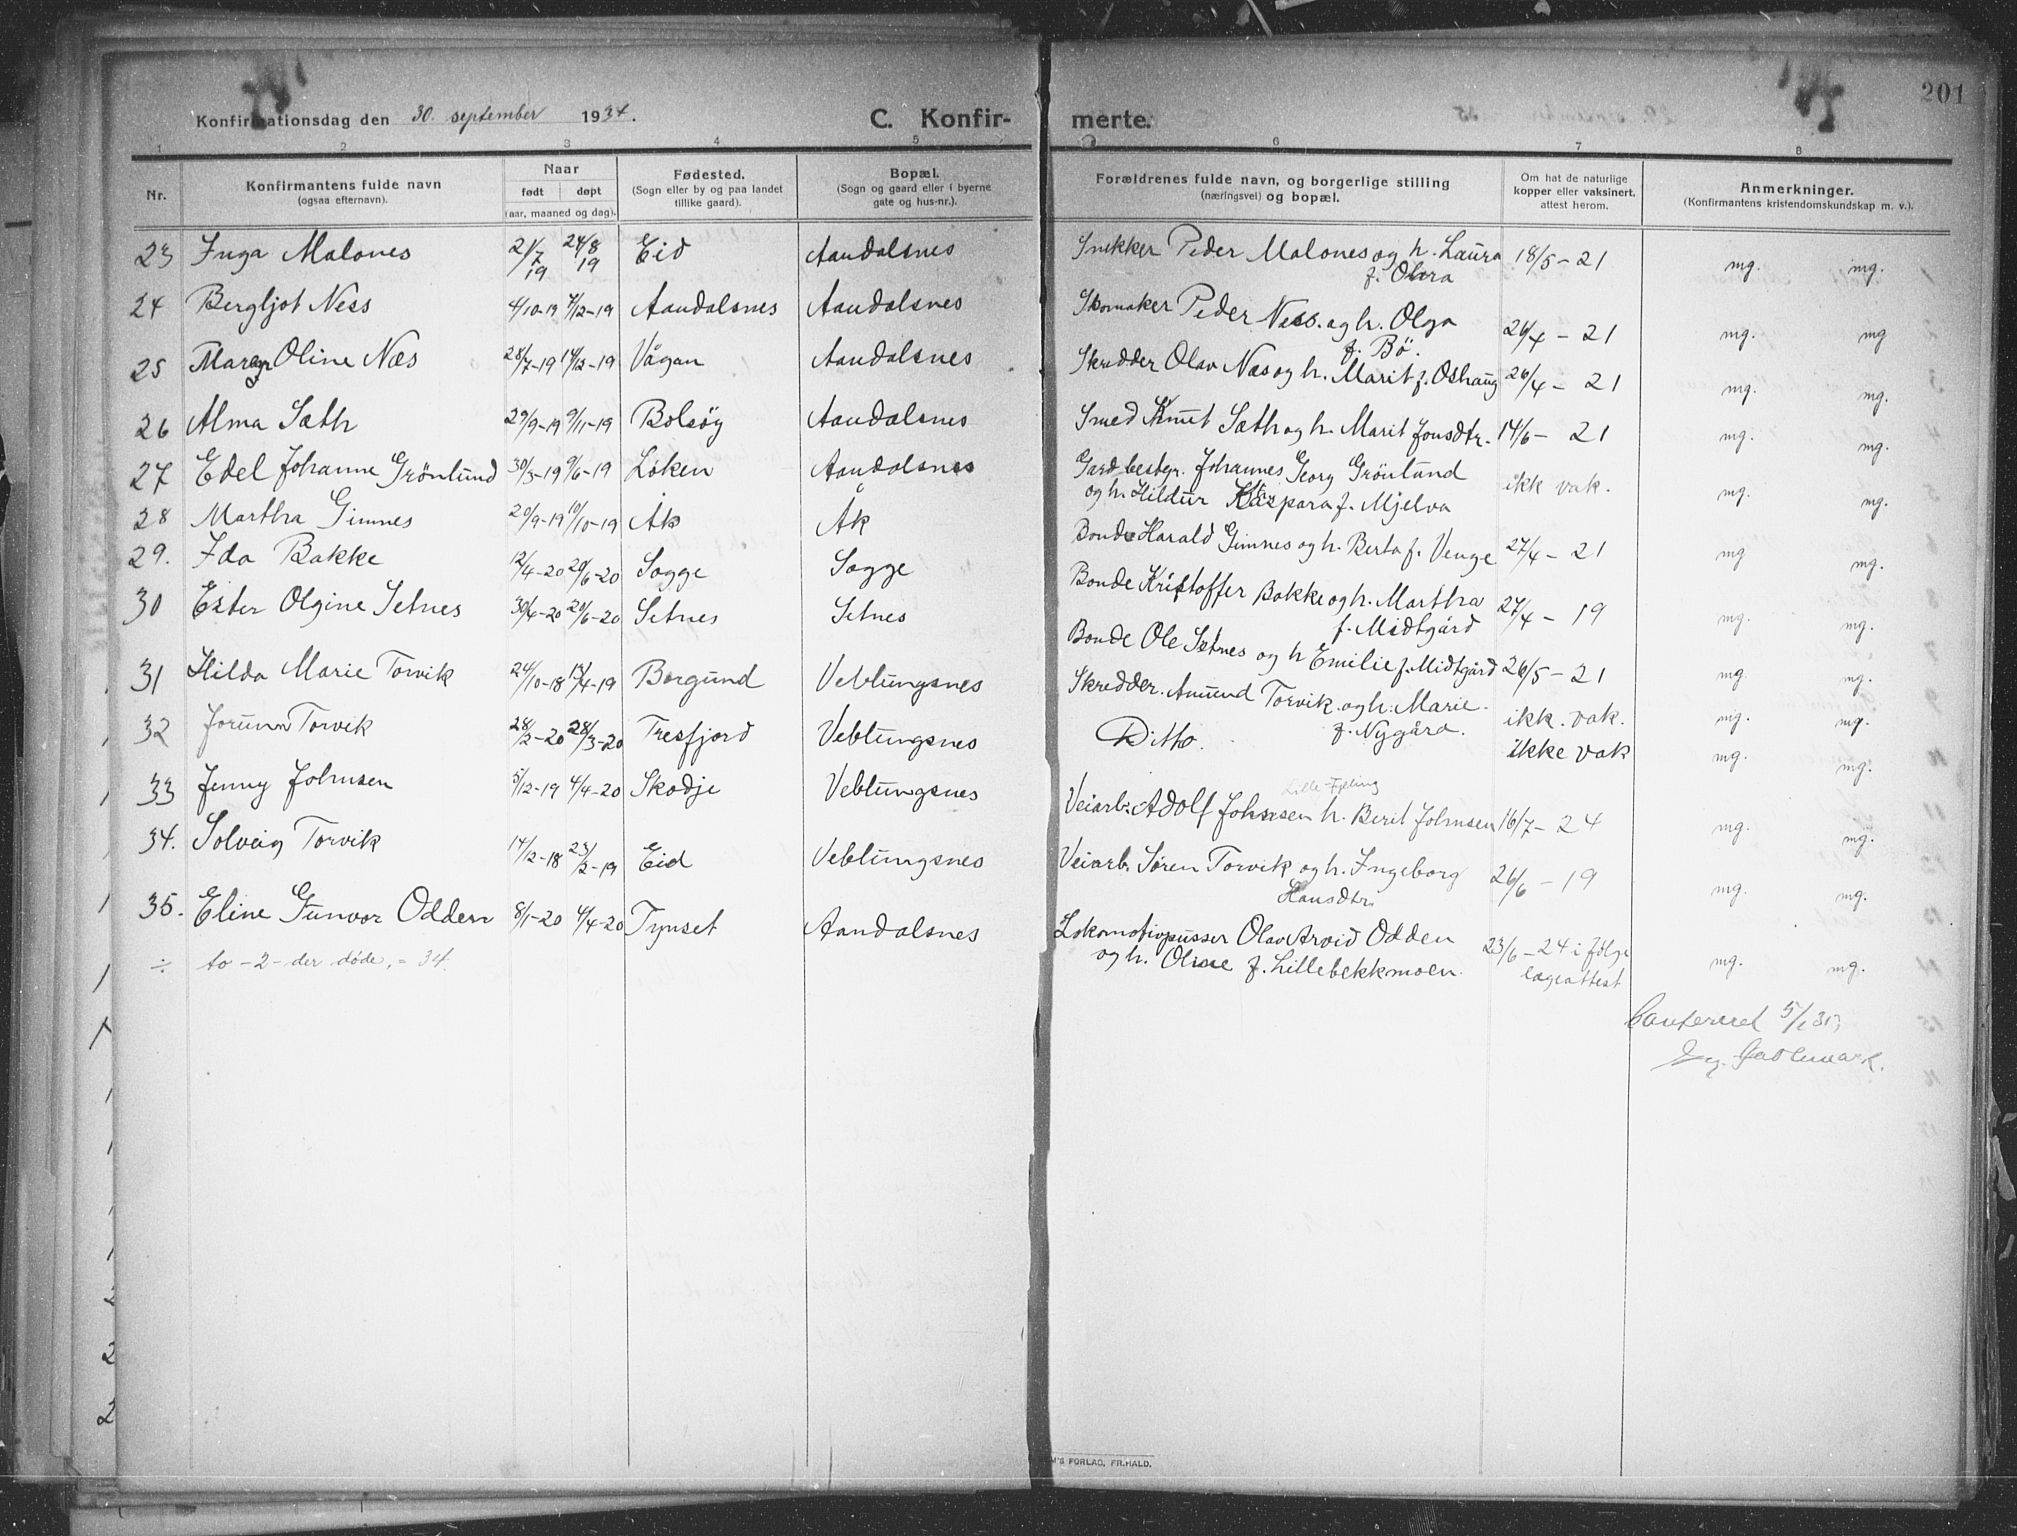 201
Konfirmationsdag den 30. september 1934.
C. Konfir-
merte.
1 2 3 4 5 6 7 8
Nr.
Konfirmantens fulde navn
(ogsaa efternavn).
Naar
født døpt
(aar, maaned og dag).
Fødested.
(Sogn eller by og paa landet
tillike gaard).
Bopæl.
(Sogn og gaard eller i byerne
gate og hus-nr.).
Forældrenes fulde navn, og borgerlige stilling
(næringsvei) og bopæl.
Om hat de naturlige
kopper eller vaksinert.
attest herom.
Anmerkninger.
(Konfirmantens kristendomskundskap m. v.).
23 Inga Malones 21/7 19 24/8 19 Eid Aandalsnes Snekker Peder Malones og h. Laura 18/5 - 21 mg. mg.
24 Bergljot Ness 4/10-19 7/12-19 Aandalsnes Aandalsnes Skomaker Peder Ness. og h. Olga
f. Bö. 26/4 - 21 mg. mg
25 Oline Næs 28/7-19 14/12-19 Vågan Aandalsnes Skredder Olav Næs og h. Marit f. Oshaug 26/4 - 21 mg. mg.
26 Alma Sæth 29/9-19 9/11-19 Bolsöy Aandalsnes Smed Knut Sæth og h. Marit Jonsdtr. 14/6 - 21 mg. mg.
27 Edel Johanne Grönlund 30/3-19 9/6-19 Løken Aandalsnes Gardbestyr. Johannes Georg Grönlund
og h. Hildur Kaspara f. Mjelva ikk vak. mg. mg.
28 Martha Gimnes 20/9-19 10/10-19 Åk Åk Bonde Harald Gimnes og h. Berta f. Venge 27/4 - 21 mg mg.
29. Ida Bakke 12/4-20 20/6-20 Sogge Sogge Bonde Kristoffer Bakke og h. Martha
f. Midtgård 27/4 - 19 mg. mg.
30 Ester Olgine Setnes 30/4-20 20/6-20 Setnes Setnes Bonde Ole Setnes og h Emilie f. Midtgård 26/5 - 21 mg. mg.
31 Hilda Marie Torvik 24/10-18 13/4-19 Borgund Veblungsnes Skredder. Amund Torvik og h. Marie.
f. Nygård. ikk. vak. mg. mg.
32 Jorunn Torvik 28/2-20 28/3-20 Tresfjord Veblungsnes Ditto. ikke vak mg. mg.
33 Jenny Johnsen 5/12-19 4/4-20 Skodje Veblungsnes Veiarb. Adolf Johnsen h. Berit Johnsen 16/7 - 24 mg. mg.
34. Solveig Torvik 14/12-18 23/2-19 Eid Veblungsnes Veiarb. Søren Torvik og h. Ingeborg
Hansdtr. 26/6 - 19 mg. mg.
35. Eline Gunvor Odden 8/1-20 4/4-20 Tynset Aandalsnes Lokomotivpusser Olav Arvid Odden
og h. Oline f. Lillebekkmoen. 23/6 - 24 i følge
lægeattest mg. mg.
÷ to - 2 - der døde, = 34.
M'S FORLAG, FR. HALD.